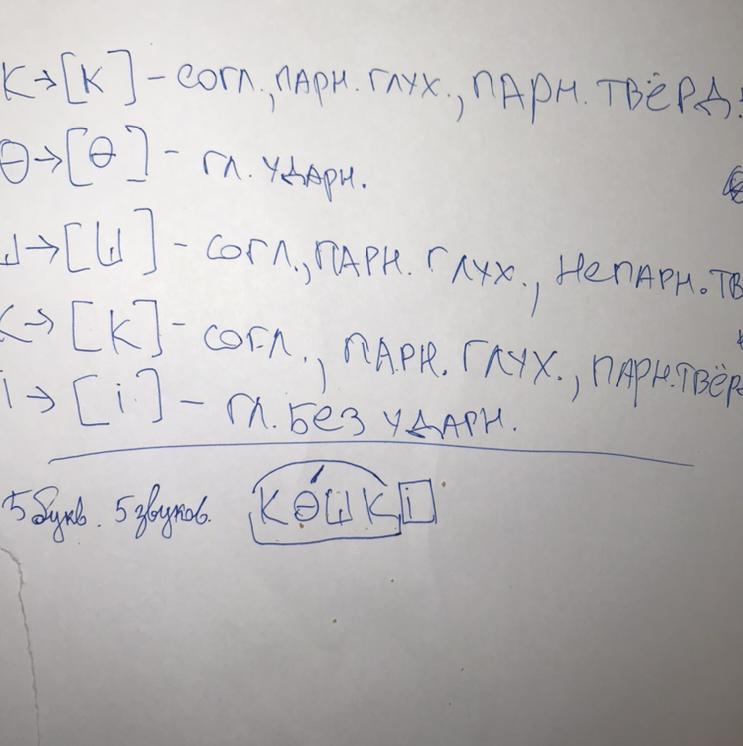 К→[К] – согл., парн. глух., парн. твёрд.
Ѳ→[Ѳ] – гл. ударн.
Ш→[Ш] – согл., парн. глух., непарн. тв
К→[К] – согл., парн. глух., парн. твёр
і→[і] – гл. без ударн.
5 букв. 5 звуков. КѲШКі